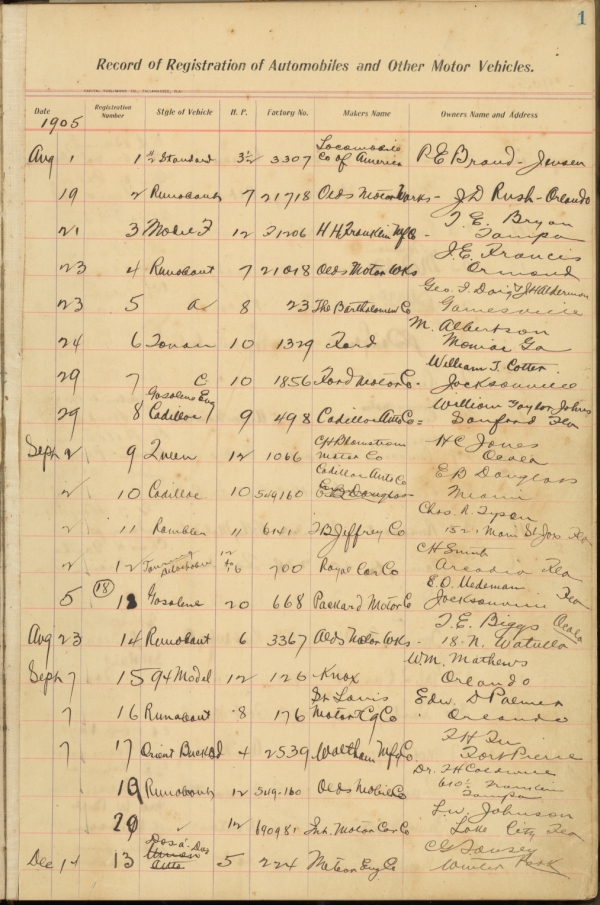 1
Record of Registration of Automobiles and Other Motor Vehicles.
Date Registration Number Style of Vehicle H. P. Factory No. Makers Name Owners Name and Address
1905
Aug 1 1 Standard 3½ 3307 Locomobile Co of America P.E. Brand - Jensen
19 2 Runabout 7 21718 Olds Motor Works - J D Rush - Orlando
21 3 Model F 12 21206 H H Franklin Mfg Co - T. E. Bryan Tampa
23 4 Runabout 7 21018 Olds Motor Wks J.E. Francis Ormond
23 5 a 8 23 The Bartholomew Co Geo. F. J H Alderman Gainesville
24 6 10 1329 Ford M. Albertson Ga
29 7 C 10 1856 Ford Motor Co - William T. Cotter Jacksonville
29 8 Gasolene Eng Cadillac 9 498 Cadillac Auto Co = William Taylor Johns Sanford Fla
Sept 2 9 Queen 12 1066 C H Blomstrom Motor Co H C Jones Ocala
2 10 Cadillac 10 549160 Cadillac Auto Co E B Douglass E B Douglass Miami
2 11 Rambler 11 6141 T B Jeffrey Co Chas. R. Tyson 152. Main St Jax Fla
2 12 Touring 12 to 16 700 Royal Car Co C H Smith Arcadia Fla
5 (18) 18 Gasolene 20 668 Packard Motor Co E. O. Uedeman Jacksonville Fla
Aug 23 14 Runabout 6 3367 Olds Motor Wks - T. E. Biggs Ocala 18 - N. Watulla
Sept 7 15 94 Model 12 126 Knox W.M. Mathews Orlando
7 16 Runabout 8 176 St Louis Motor C'g Co Edw. D Palmer Orlando
7 17 Orient Buckbd 4 2539 Waltham Mfg Co Fort Pierce
19 Runabout 12 549-160 Olds Mobile Co Dr. 610 Franklin Tampa
20 ✓ 12 690981 Int. Motor Car Co L.W. Johnson Lake City Fla
Dec 14 13 Dos-a-Dos Union Auto 5 224 Meteor Eng Co Winter Park